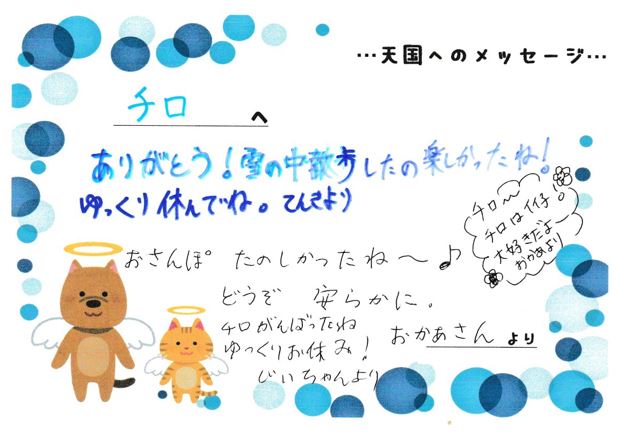 …天国へのメッセージ…
チロ へ
ありがとう！雪の中散歩したの楽しかったね！
ゆっくり休んでいね。てんきより
チロ〜
チロはイイ子！
大好きだよ〜
おかあより
おさんぽ たのしかったね〜♪
どうぞ 安らかに。
おかあさん より
チロがんばったね
ゆっくりお休み！
じいちゃんより